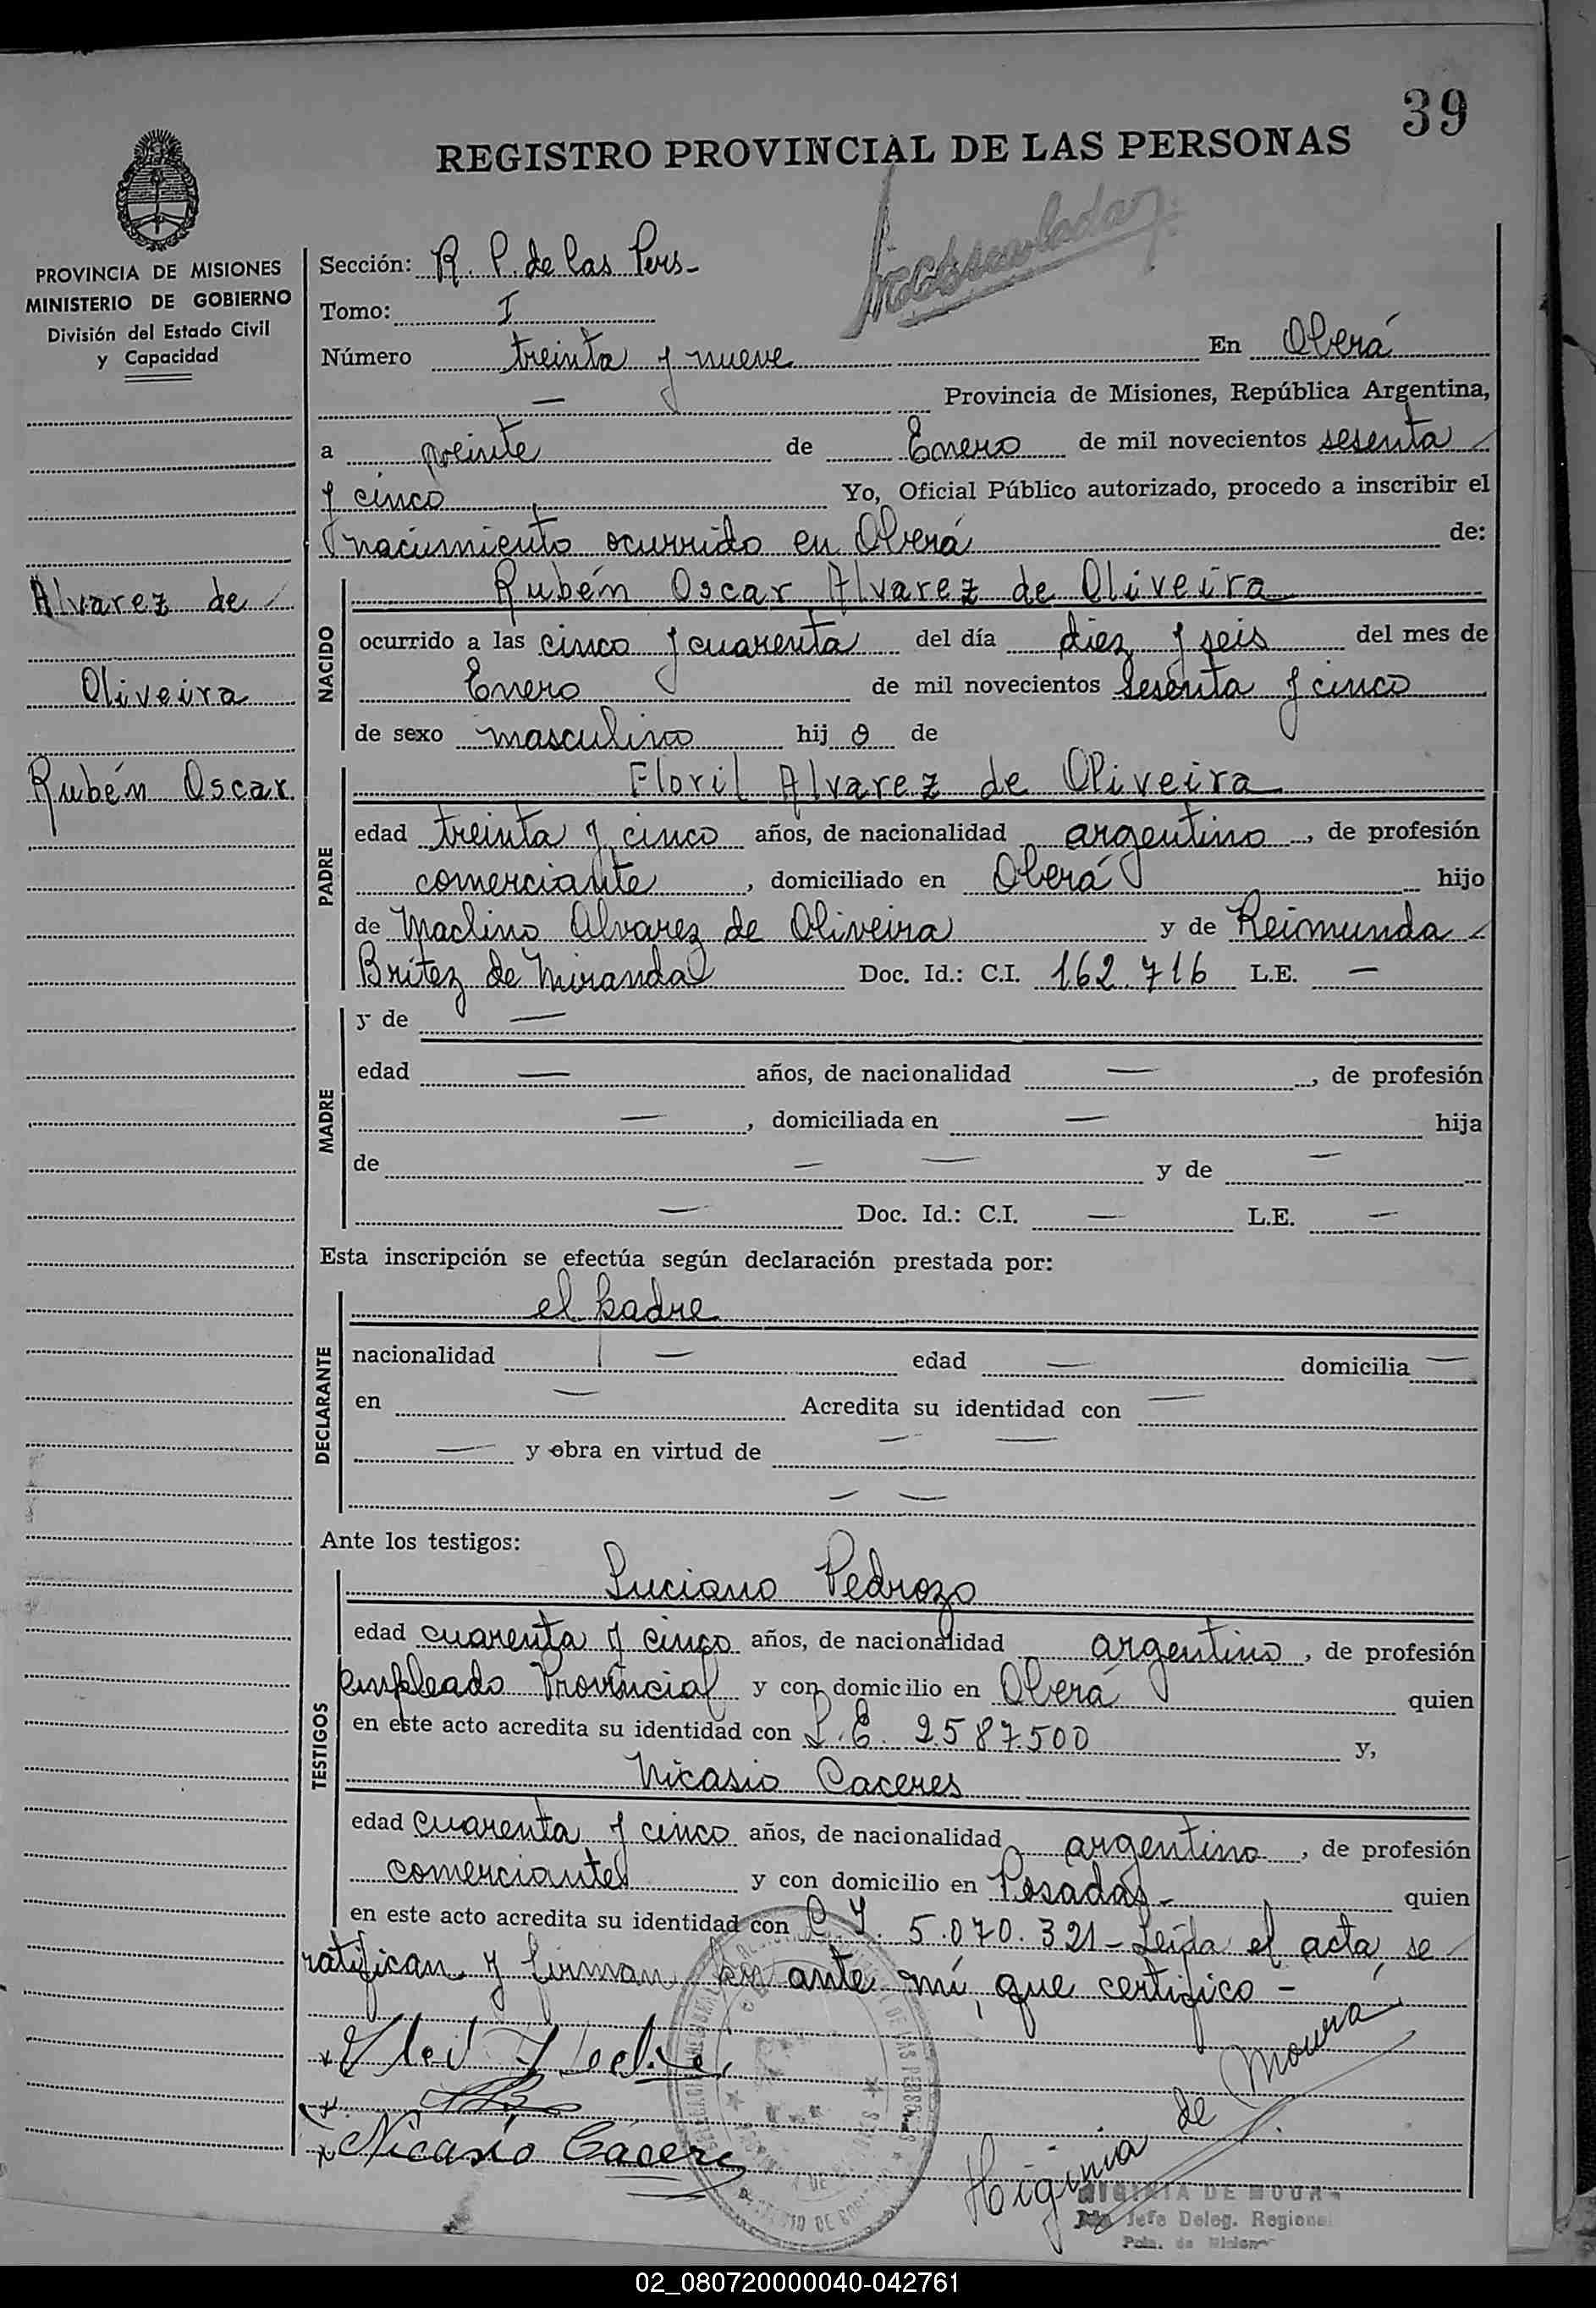 39
REGISTRO PROVINCIAL DE LAS PERSONAS
PROVINCIA DE MISIONES
MINISTERIO DE GOBIERNO
División del Estado Civil
y Capacidad
Alvarez de
Oliveira
Rubén Oscar
Sección: R. P. de las Pers-
Tomo: I
Número treinta y nueve En Oberá
— Provincia de Misiones, República Argentina,
a veinte de Enero de mil novecientos sesenta
y cinco Yo, Oficial Público autorizado, procedo a inscribir el
nacimiento ocurrido en Oberá de:
NACIDO
Rubén Oscar Alvarez de Oliveira
ocurrido a las cinco y cuarenta del día diez y seis del mes de
Enero de mil novecientos sesenta y cinco
de sexo masculino hijo de
PADRE
Floril Alvarez de Oliveira
edad treinta y cinco años, de nacionalidad argentino, de profesión
comerciante, domiciliado en Oberá hijo
de Maclino Alvarez de Oliveira y de Reimunda
Britez de Miranda Doc. Id.: C.I. 162.716 L.E. —
MADRE
y de —
edad — años, de nacionalidad —, de profesión
—, domiciliada en — hija
de — — y de —
— Doc. Id.: C.I. — L.E. —
Esta inscripción se efectúa según declaración prestada por:
DECLARANTE
el padre
nacionalidad — edad — domicilia —
en — Acredita su identidad con —
— y obra en virtud de — —
— —
Ante los testigos:
TESTIGOS
Luciano Pedrozo
edad cuarenta y cinco años, de nacionalidad argentino, de profesión
empleado Provincial y con domicilio en Oberá quien
en este acto acredita su identidad con L.E. 2587.500 y,
Nicasio Caceres
edad cuarenta y cinco años, de nacionalidad argentino, de profesión
comerciante y con domicilio en Posadas- quien
en este acto acredita su identidad con C.I. 5.070.321- Leída el acta, se
ratifican y firman por ante mí, que certifico -
Nicasio Cáceres
Higinia de Moura
HIGINIA DE MOURA
Jefe Deleg. Regional
Pcia. de Misiones
02_080720000040-042761